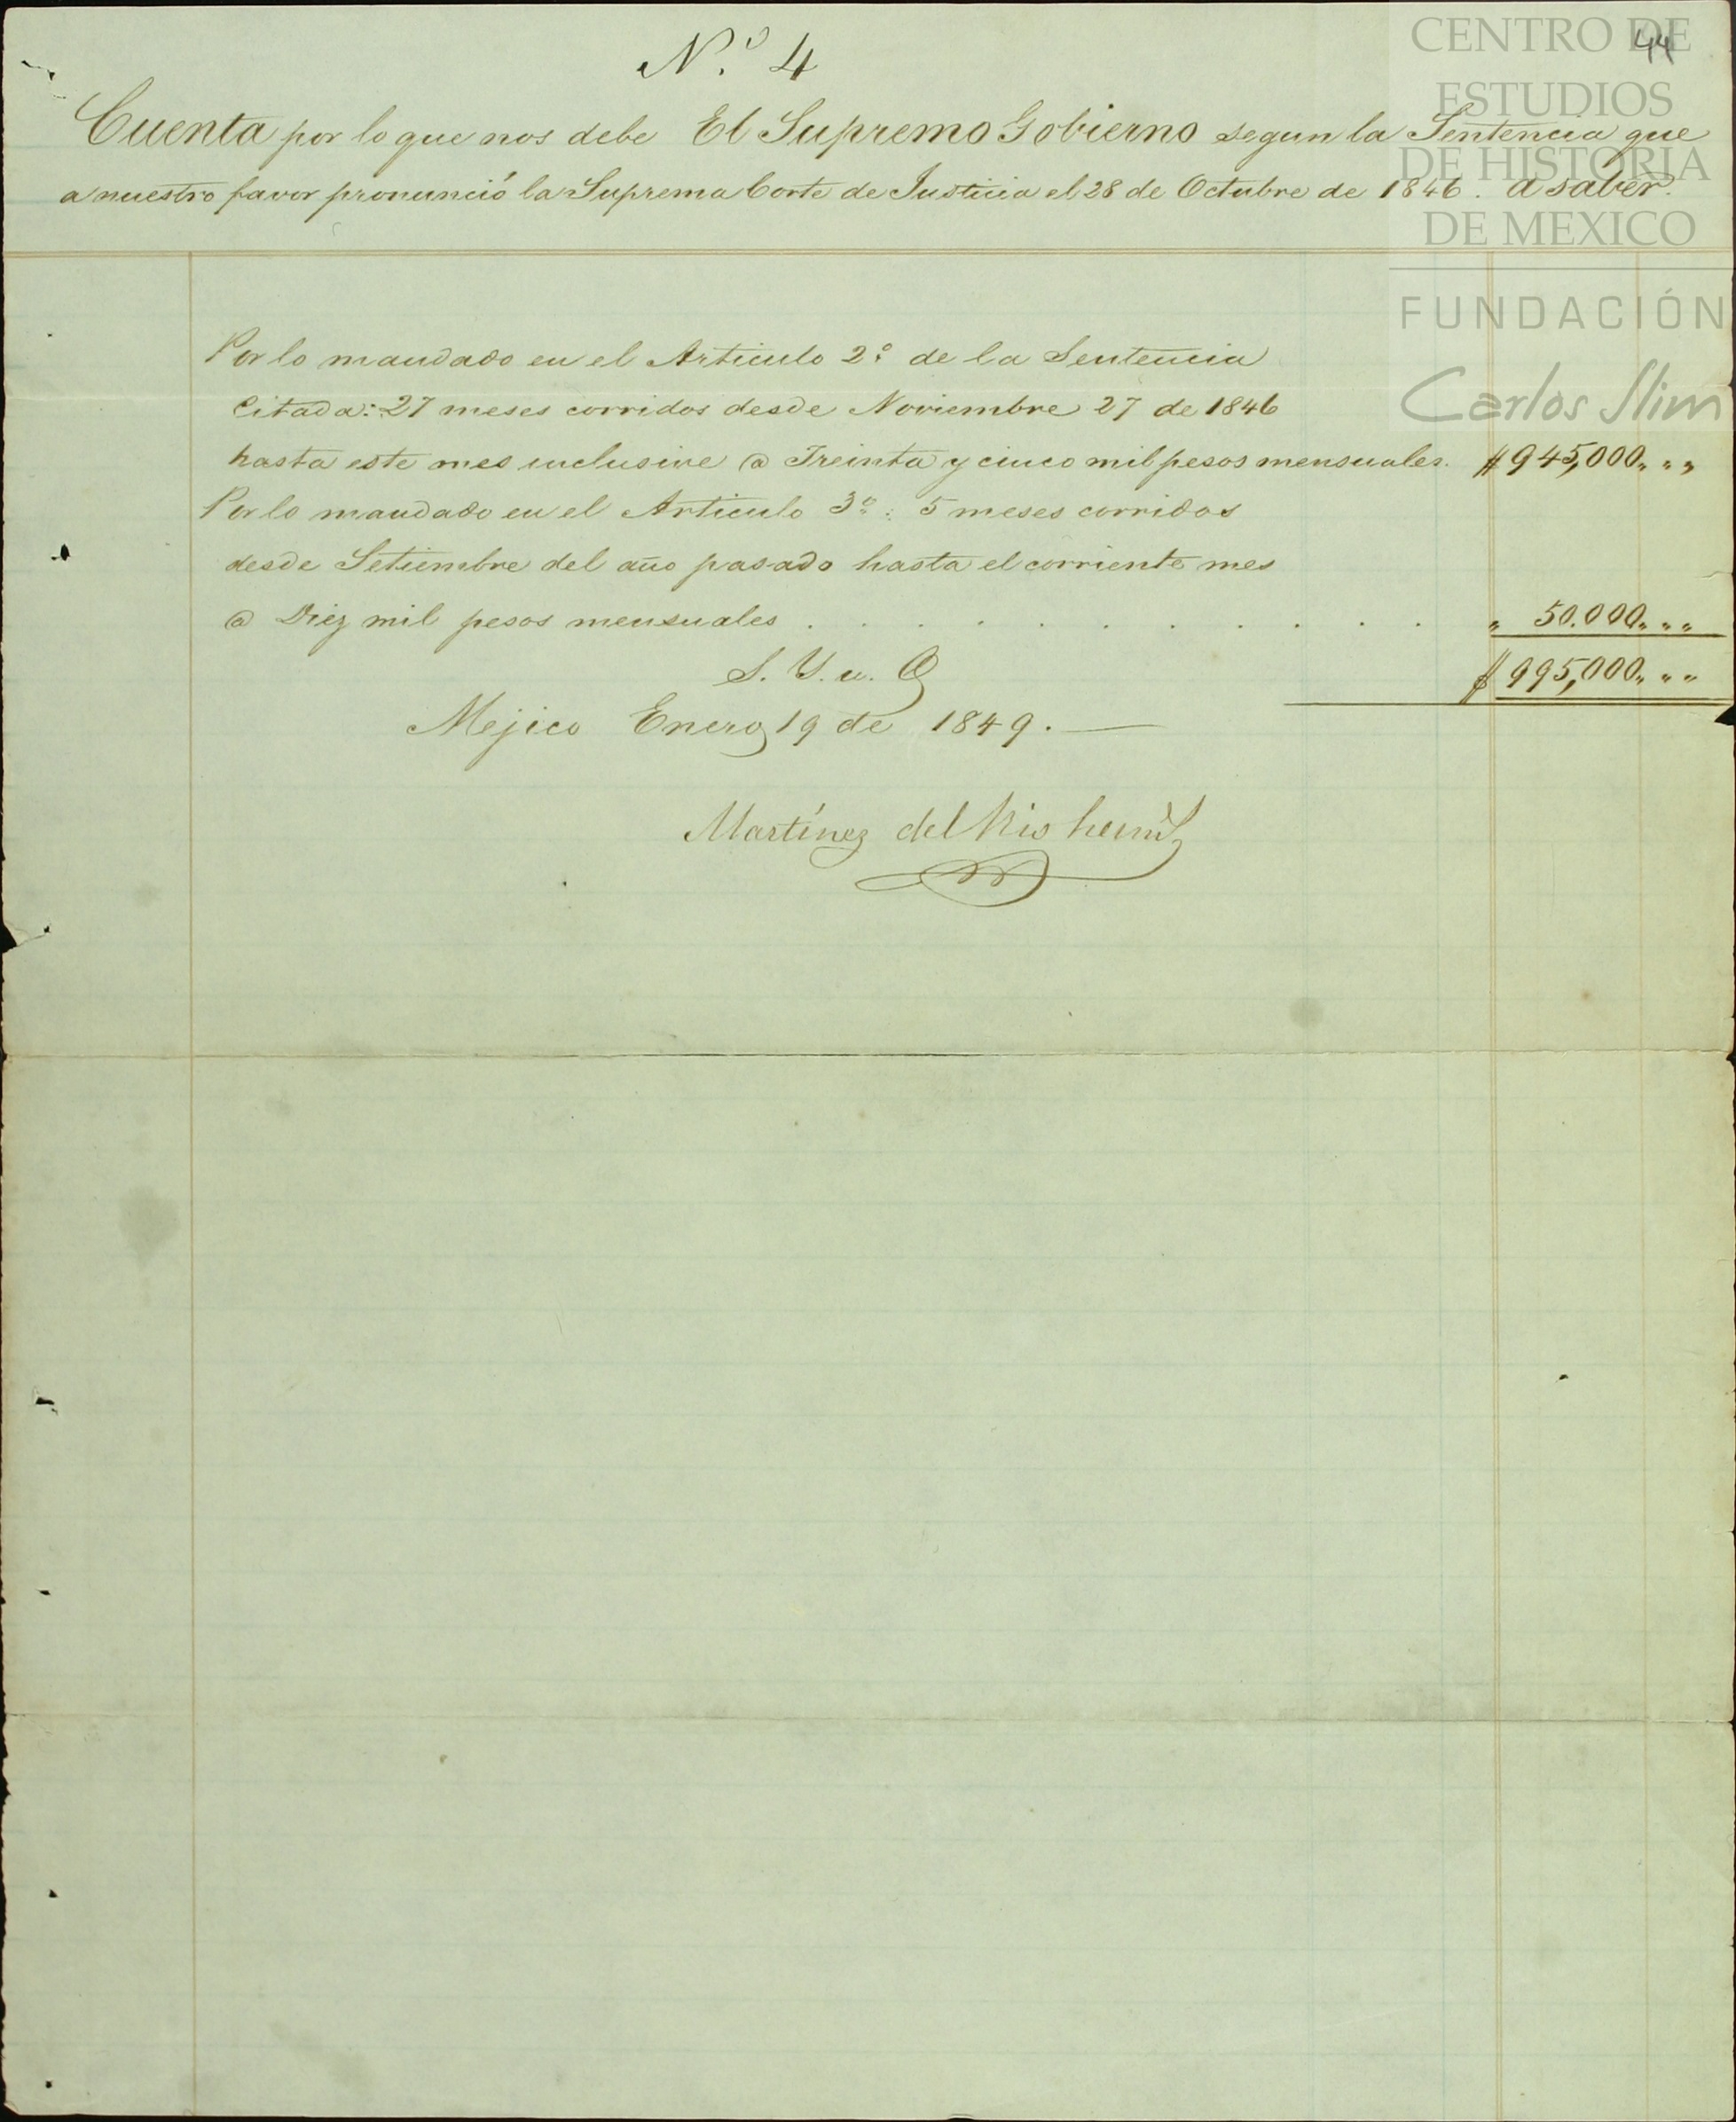 Nº 4
44
CENTRO DE
ESTUDIOS
DE HISTORIA
DE MEXICO
FUNDACIÓN
Carlos Slim
Cuenta por lo que nos debe El Supremo Gobierno segun la Sentencia que
a nuestro favor pronunció la Suprema Corte de Justicia el 28 de Octubre de 1846. a saber.
Por lo mandado en el Articulo 2º de la Sentencia
Citada: 27 meses corridos desde Noviembre 27 de 1846
hasta este mes inclusive @ Treinta y cinco mil pesos mensuales. $ 945,000„ „ „
Por lo mandado en el Articulo 3º: 5 meses corridos
desde Setiembre del año pasado hasta el corriente mes
@ Diez mil pesos mensuales . . . . . . . . . . . „ 50.000„ „ „
S. Y. u. O $ 995,000„ „ „
Mejico Enero 19 de 1849.
Martínez del Rio herms